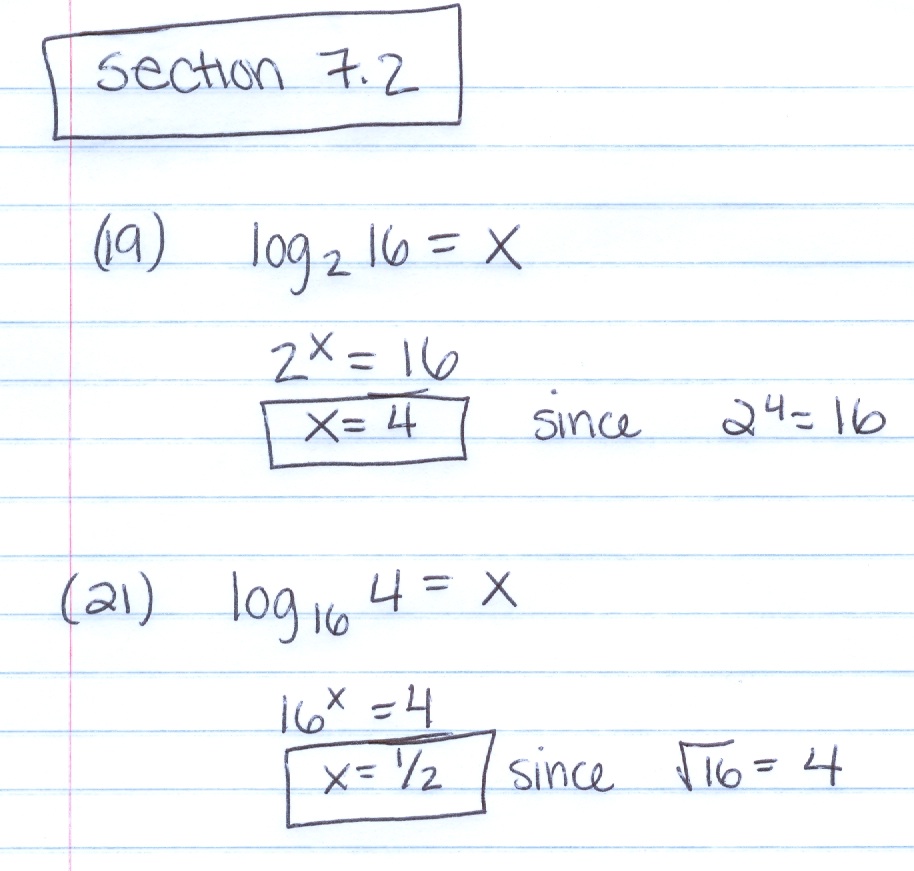 section 7.2
(19) log₂ 16 = x
2ˣ = 16
x = 4 since 2⁴ = 16
(21) log₁₆ 4 = x
16ˣ = 4
x = 1/2 since √16 = 4